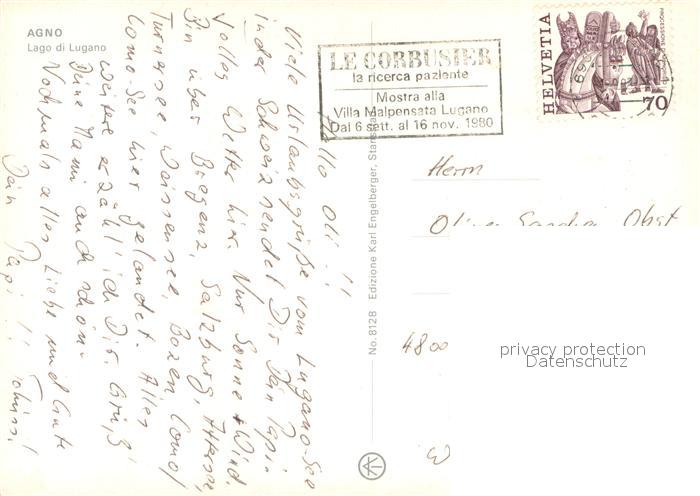 AGNO
Lago di Lugano
LE CORBUSIER
la ricerca paziente
Mostra alla
Villa Malpensata Lugano
Dal 6 sett. al 16 nov. 1980
HELVETIA
70
Hallo Oli !!
Viele Urlaubsgrüße vom Lugano-See
in der Schweiz sendet Dir Dein Papi.
Tolles Wetter hier. Nur Sonne + Wind.
Bin über Bregenz, Salzburg, Attersee,
Turnersee, Weissensee, Bozen Como/
Como See hier gelandet. Alles
weitere erzähl ich Dir. Grüß'
Deine Mami auch schön.
Nochmals alles Liebe und Gute
Dein Papi !! Tschüss!
No. 8128 Edizione Karl Engelberger, Stansstad
Herrn
Obst
4800
privacy protection
Datenschutz